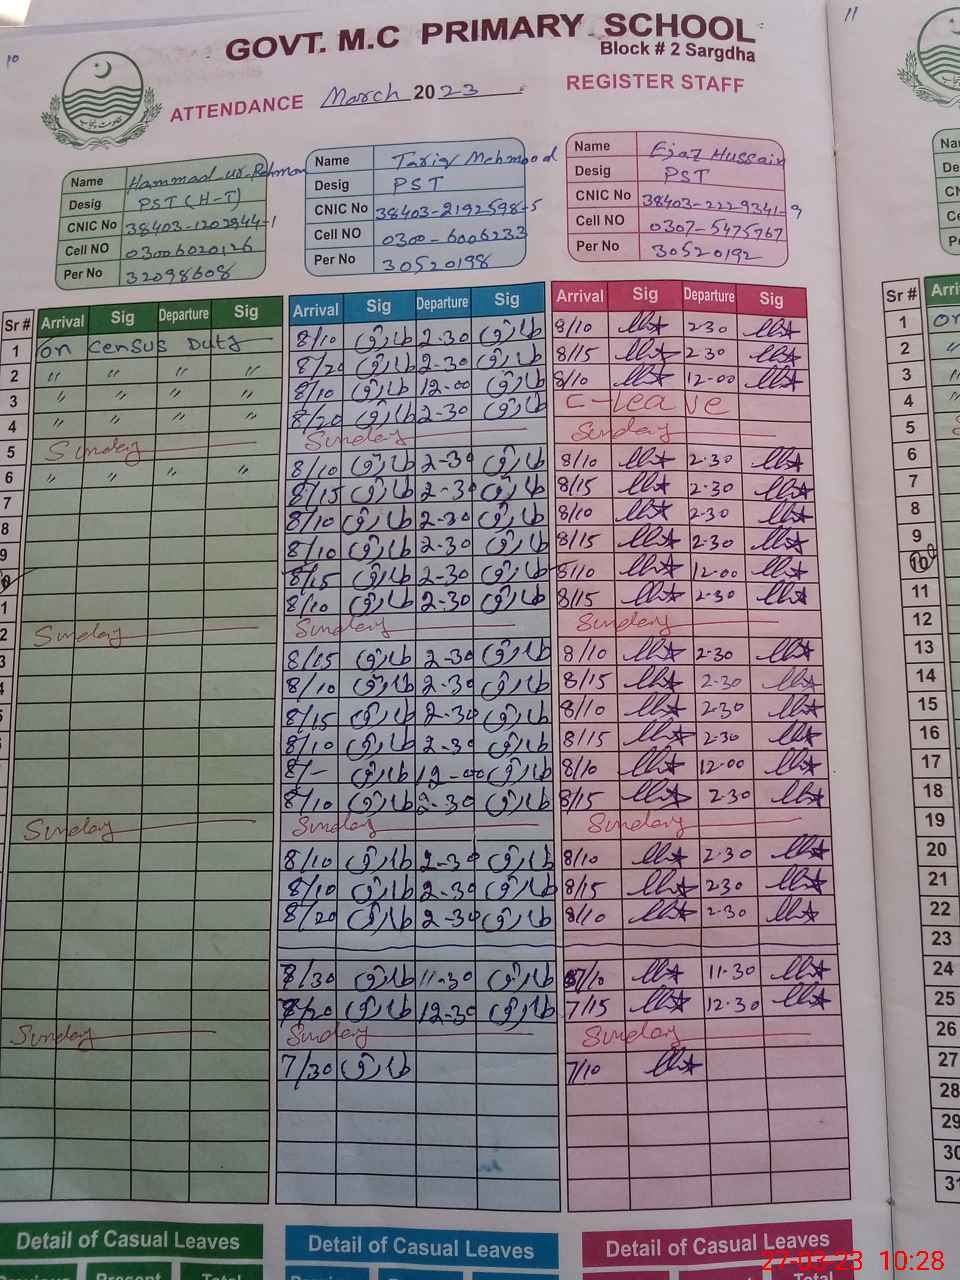 10
11
GOVT. M.C PRIMARY SCHOOL
Block # 2 Sargdha
ATTENDANCE March 2023 REGISTER STAFF
حکومت پنجاب
Name Hammad ur Rehman
Desig PST (H-T)
CNIC No 38403-1202944-1
Cell NO 03006020126
Per No 32098608
Name Tariq Mehmood
Desig PST
CNIC No 38403-2192598-5
Cell NO 0300-6006233
Per No 30520198
Name Ejaz Hussain
Desig PST
CNIC No 38403-2229341-9
Cell NO 0307-5475767
Per No 30520192
Sr # Arrival Sig Departure Sig Arrival Sig Departure Sig Arrival Sig Departure Sig Sr #
1 on Census Duty 8/10 طارق 2-30 طارق 8/10 2-30 1
2 " " " " 8/20 طارق 2-30 طارق 8/15 2-30 2
3 " " " " 8/10 طارق 12-00 طارق 8/10 12-00 3
4 " " " " 8/20 طارق 2-30 طارق C-leave 4
5 Sunday Sunday Sunday 5
6 " " " " 8/10 طارق 2-30 طارق 8/10 2-30 6
7 8/15 طارق 2-30 طارق 8/15 2-30 7
8 8/10 طارق 2-30 طارق 8/10 2-30 8
9 8/10 طارق 2-30 طارق 8/15 2-30 9
8/15 طارق 2-30 طارق 8/10 12-00 10
1 8/10 طارق 2-30 طارق 8/15 2-30 11
2 Sunday Sunday Sunday 12
3 8/15 طارق 2-30 طارق 8/10 2-30 13
4 8/10 طارق 2-30 طارق 8/15 2-30 14
5 8/15 طارق 2-30 طارق 8/10 2-30 15
8/10 طارق 2-30 طارق 8/15 2-30 16
8/- طارق 12-00 طارق 8/10 12-00 17
8/10 طارق 2-30 طارق 8/15 2-30 18
Sunday Sunday Sunday 19
8/10 طارق 2-30 طارق 8/10 2-30 20
8/10 طارق 2-30 طارق 8/15 2-30 21
8/20 طارق 2-30 طارق 8/10 2-30 22
23
7/30 طارق 11-30 طارق 7/10 11-30 24
7/20 طارق 12-30 طارق 7/15 12-30 25
Sunday Sunday Sunday 26
7/30 طارق 7/10 27
28
29
30
31
Detail of Casual Leaves Detail of Casual Leaves Detail of Casual Leaves
Previous Present Total
27-03-23 10:28